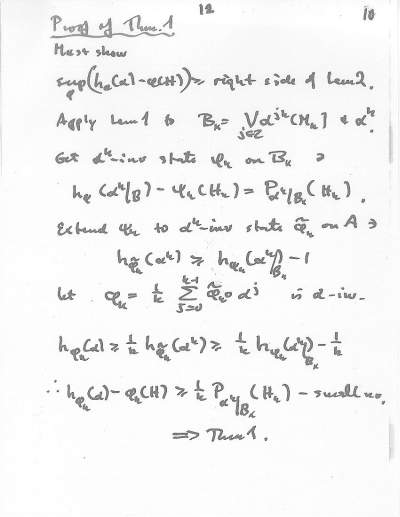 12
10
Proof of Thm. 1
Must show
sup_φ (h_φ(α) - φ(H)) ≥ right side of Lem 2.
Apply Lem 1 to B_k = ⋁_{j∈Z} α^{jk}(M_k) & α^k.
Get α^k-inv state φ_k on B_k ∋
h_φ(α^k/B) - φ_k(H_k) = P_{α^k/B_k}(H_k).
Extend φ_k to α^k-inv state φ̃_k on A ∋
h_{φ̃_k}(α^k) ≥ h_{φ_k}(α^k/B_k) - 1
let φ_k = 1/k Σ_{j=0}^{k-1} φ̃_k∘α^j is α-inv.
h_{φ_k}(α) ≥ 1/k h_{φ̃_k}(α^k) ≥ 1/k h_{φ_k}(α^k/B_k) - 1/k
∴ h_{φ_k}(α) - φ_k(H) ≥ 1/k P_{α^k/B_k}(H_k) - small no.
⟹ Thm 1.